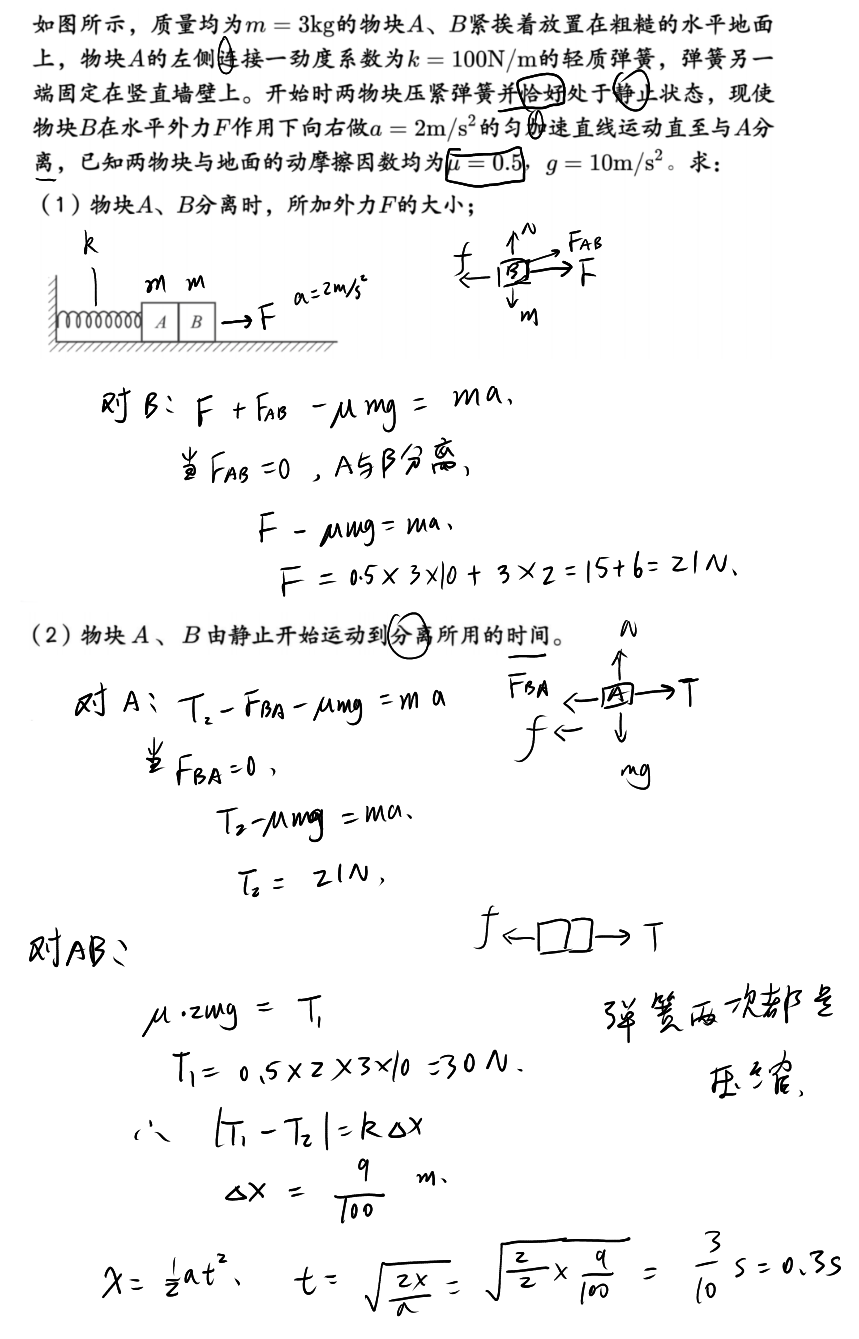 如图所示，质量均为m = 3kg的物块A、B紧挨着放置在粗糙的水平地面
上，物块A的左侧连接一劲度系数为k = 100N/m的轻质弹簧，弹簧另一
端固定在竖直墙壁上。开始时两物块压紧弹簧并恰好处于静止状态，现使
物块B在水平外力F作用下向右做a = 2m/s²的匀加速直线运动直至与A分
离，已知两物块与地面的动摩擦因数均为μ = 0.5，g = 10m/s²。求：
（1）物块A、B分离时，所加外力F的大小；
k
m m
A B F a=2m/s²
N
f B FAB
F
m
对B： F + FAB - μmg = ma、
当FAB=0，A与B分离、
F - μmg = ma、
F = 0.5×3×10 + 3×2 = 15+6 = 21N、
（2）物块 A 、 B 由静止开始运动到分离所用的时间。
N
FBA A T
f
mg
对A： T₂ - FBA - μmg = ma
当FBA=0，
T₂-μmg = ma、
T₂ = 21N，
f T
对AB：
μ·2mg = T₁
T₁ = 0.5×2×3×10 = 30N.
弹簧两次都是
压缩，
∴ |T₁ - T₂| = kΔx
Δx = 9/100 m、
x = ½at²、 t = √(2x/a) = √(2/2 × 9/100) = 3/10 s = 0.3s